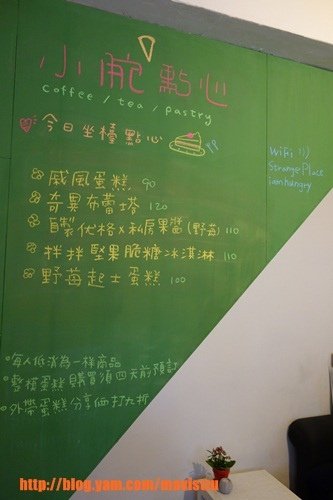 小腕點心
coffee / tea / pastry
今日坐檯點心
戚風蛋糕 90
奇異布蕾塔 120
自製优格x私房果醬(野莓) 110
拌拌堅果脆糖冰淇淋 110
野莓起士蛋糕 100
WiFi
Strange Place
iamhungry
每人低消為一樣商品
整模蛋糕購買須四天前預訂
外帶蛋糕分享価打九折
http://blog.yam.com/